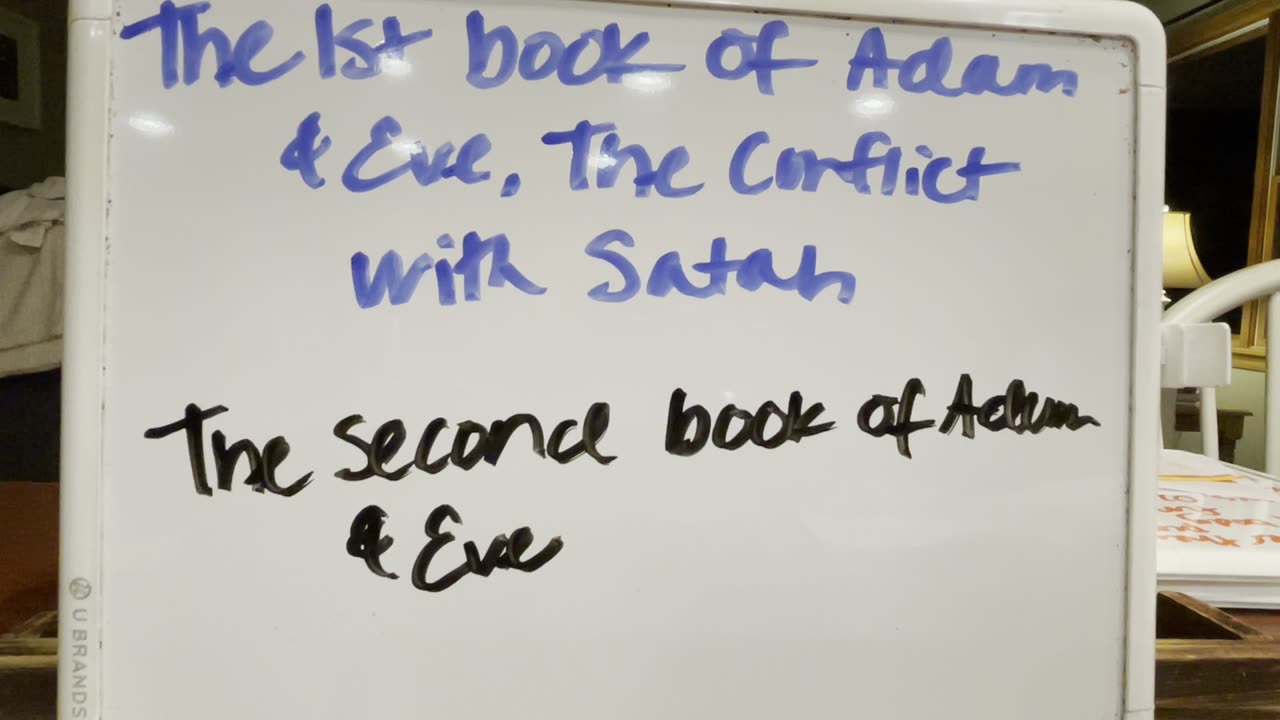 The 1st book of Adam
& Eve, The Conflict
with Satan
The second book of Adam
& Eve
U BRANDS